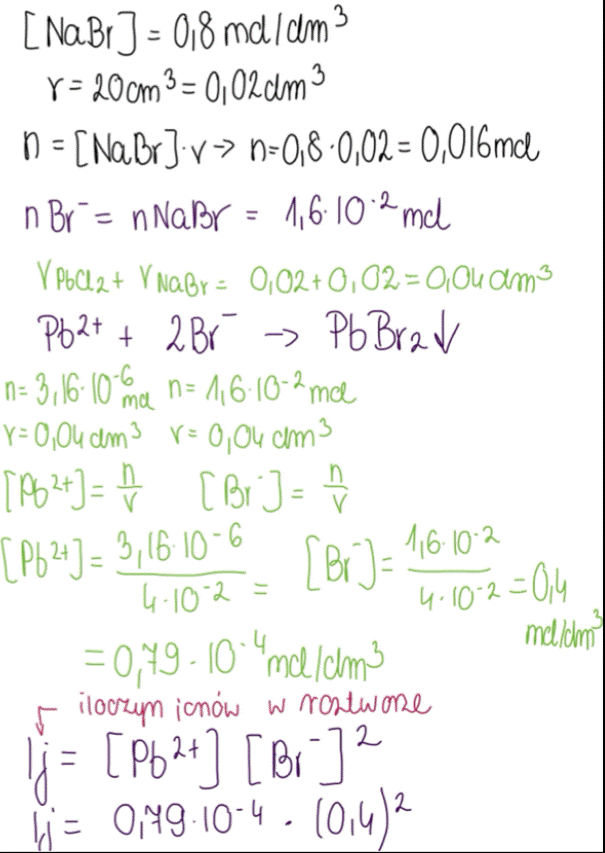 [NaBr] = 0,8 mol/dm³
v = 20cm³ = 0,02dm³
n = [NaBr]·v → n=0,8·0,02 = 0,016mol
n Br⁻ = nNaBr = 1,6·10⁻² mol
V PbCl₂ + V NaBr = 0,02+0,02 = 0,04dm³
Pb²⁺ + 2Br⁻ → PbBr₂↓
n = 3,16·10⁻⁶ mol n = 1,6·10⁻² mol
v = 0,04dm³ v = 0,04dm³
[Pb²⁺] = n/v [Br⁻] = n/v
[Pb²⁺] = 3,16·10⁻⁶ / 4·10⁻² = [Br⁻] = 1,6·10⁻² / 4·10⁻² = 0,4 mol/dm³
= 0,79·10⁻⁴ mol/dm³
iloczyn jonów w roztworze
Ij = [Pb²⁺] [Br⁻]²
Ij = 0,79·10⁻⁴ · (0,4)²